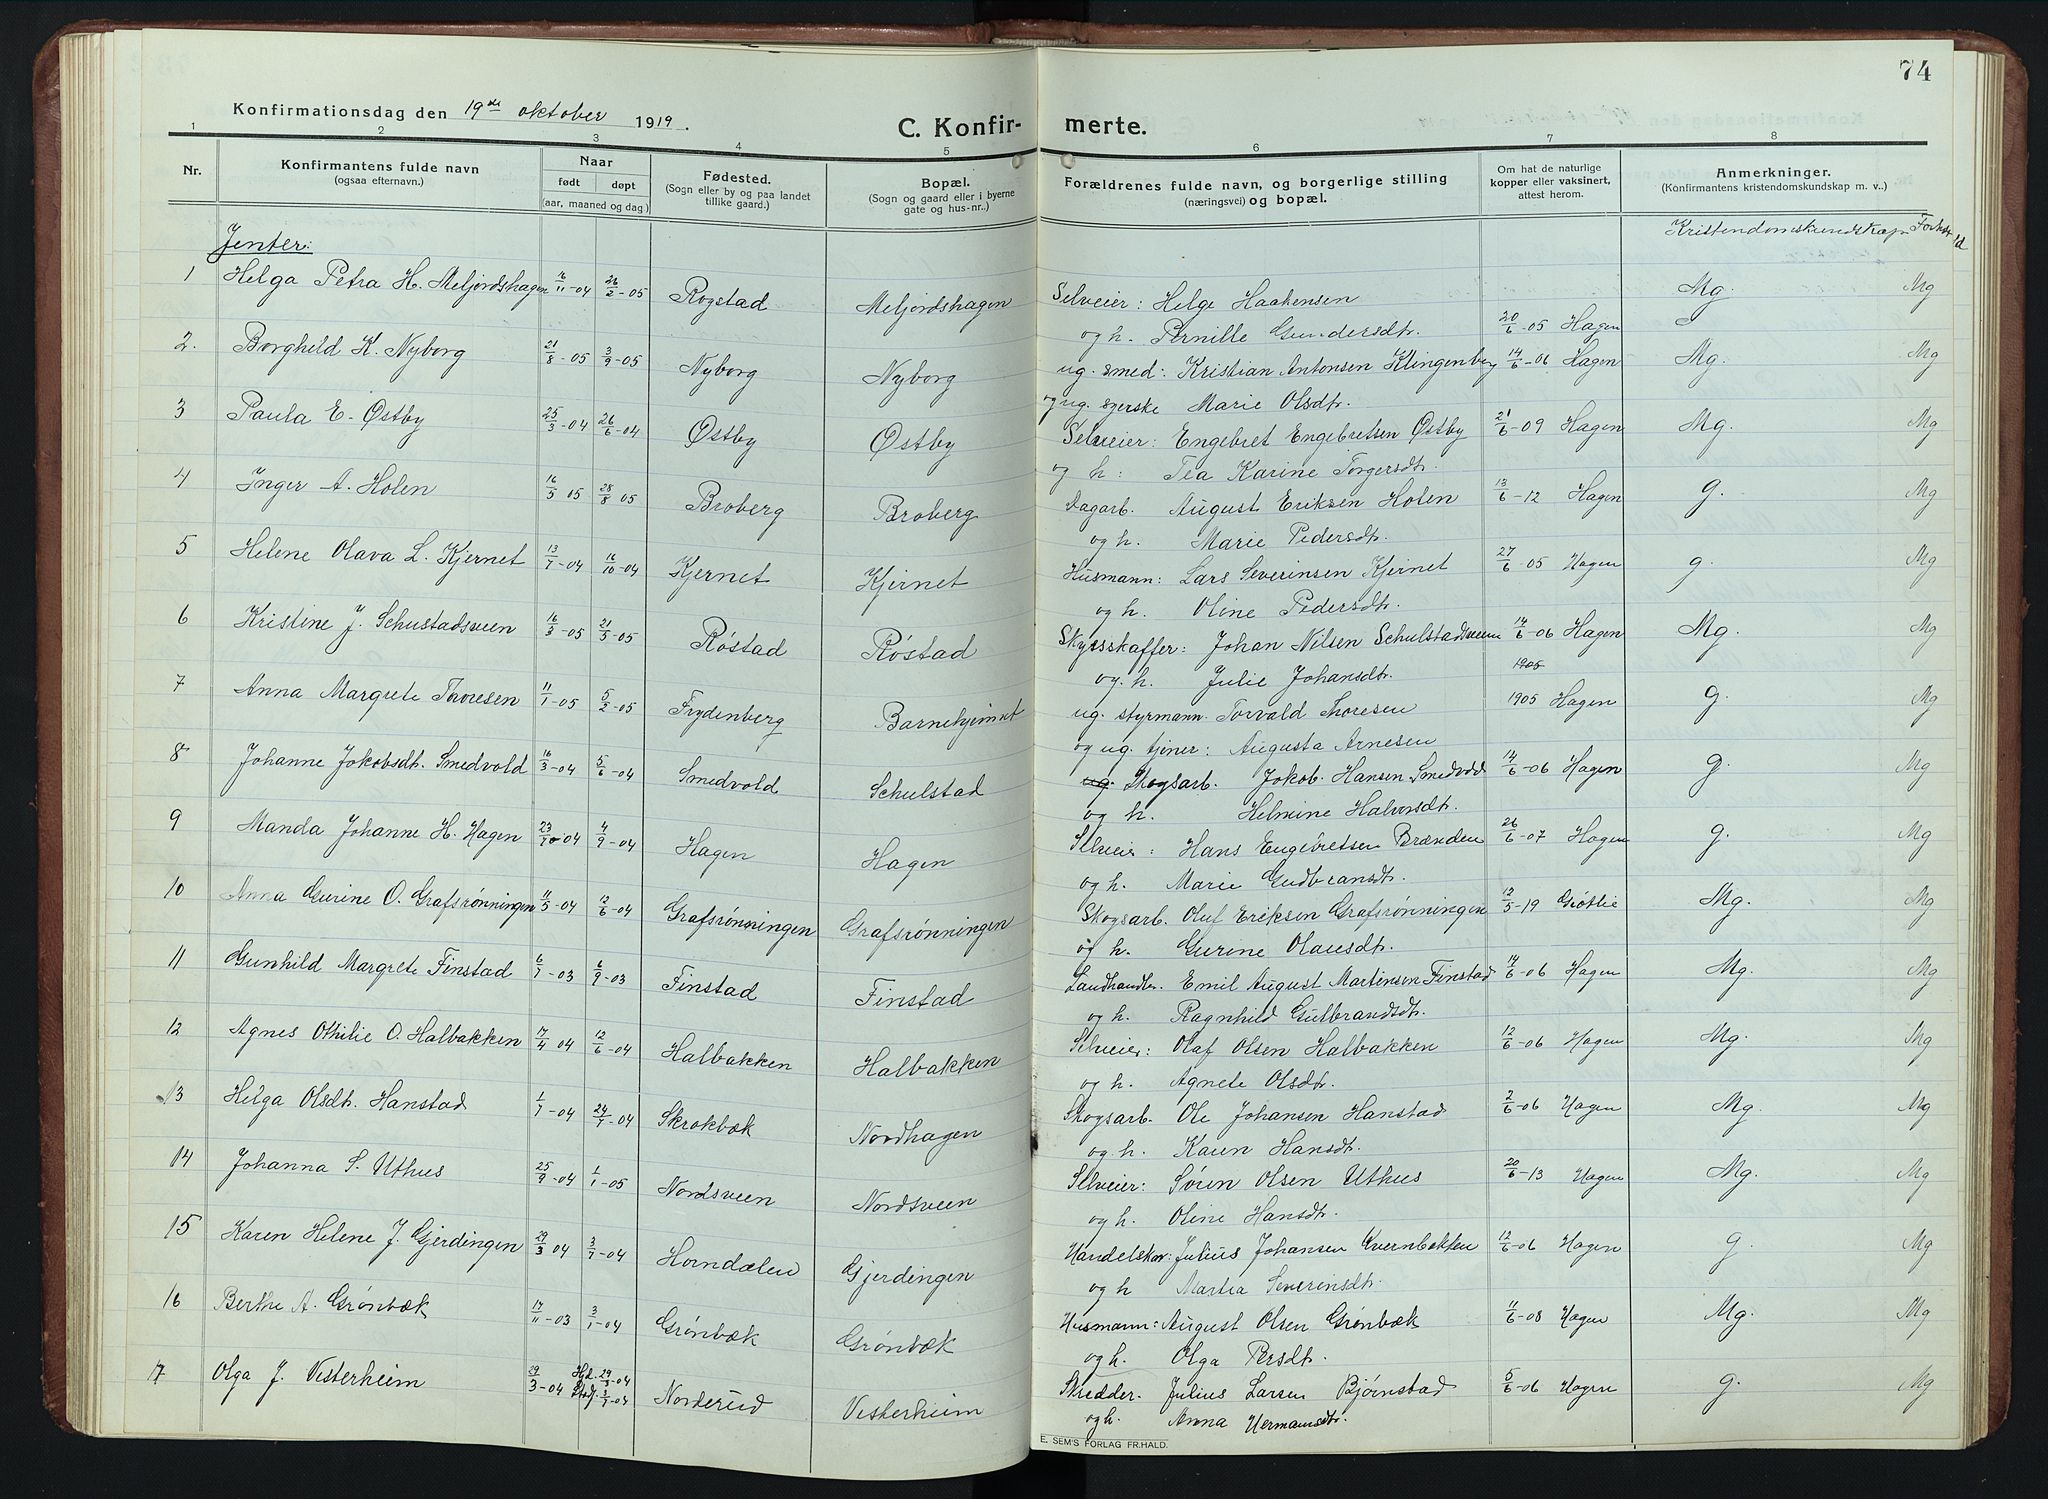 74
Konfirmationsdag den 19de oktober 1919.
C. Konfir- merte.
1 2 3 4 5 6 7 8
Nr. Konfirmantens fulde navn (ogsaa efternavn.) Naar født døpt (aar, maaned og dag) Fødested. (Sogn eller by og paa landet tillike gaard.) Bopæl. (Sogn og gaard eller i byerne gate og hus-nr..) Forældrenes fulde navn, og borgerlige stilling (næringsvei) og bopæl. Om hat de naturlige kopper eller vaksinert, attest herom. Anmerkninger. (Konfirmantens kristendomskundskap m. v..)
Kristendomskundskap Forhold
Jenter:
1 Helga Petra H. Meljordshagen 16/11-04 26/2-05 Rogstad Meljordshagen Selveier: Helge Haakensen Mg. Mg
og h. Pernille Gundersdtr. 20/6-05 Hagen
2. Borghild K. Nyborg 21/8-05 3/9-05 Nyborg Nyborg ug. smed: Kristian Antonsen Klingenberg 14/6-06 Hagen Mg. Mg
og ug. syerske Marie Olsdtr.
3 Paula E. Østby 25/3-04 26/6-04 Østby Østby Selveier: Engebret Engebretsen Østby 21/6-09 Hagen Mg. Mg
og h: Tea Karine Torgersdtr.
4 Inger A. Holen 16/5 05 28/8 05 Broberg Broberg Dagarb. August Eriksen Holen 13/6-12 Hagen g. Mg
og h. Marie Pedersdtr.
5 Helene Olava L. Kjernet 13/7-04 16/10-04 Kjernet Kjernet Husmann: Lars Severinsen Kjernet 27/6-05 Hagen g. Mg
og h. Oline Pedersdtr.
6 Kristine J. Schustadsveen 16/3-05 21/5-05 Røstad Røstad Skysskaffer: Johan Nilsen Schulstadsveen 14/6-06 Hagen Mg. Mg
og. h. Julie Johansdtr. 1905
7 Anna Margrete Thoresen 11/1-05 5/2-05 Frydenberg Barnehjemmet ug. styrmann. Torvald Thoresen 1905 Hagen g. Mg
og ug. tjener: Augusta Arnesen
8 Johanne Jokobsdt. Smedvold 16/3-04 5/6-04 Smedvold Schulstad ug. Skogsarb. Jokob. Hansen Smedvold 14/6-06 Hagen g. Mg
og h. Helmine Halvorsdtr.
9 Manda Johanne H. Hagen 23/7-04 4/9-04 Hagen Hagen Selveier: Hans Engebretsen Brænden 26/6-07 Hagen g. Mg
og h. Marie Gudbransdtr.
10 Anna Gurine O. Grafsrønningen 11/5-04 12/6-04 Grafsrønningen Grafsrønningen Skogsarb. Oluf Eriksen Grafsrønningen 12/5-19 Mg. Mg
og h. Gurine Olausdtr.
11 Gunhild Margrete Finstad 6/7-03 6/9-03 Finstad Finstad Landhandler. Emil August Martinsen Finstad 14/6-06 Hagen Mg. Mg
og h. Ragnhild Gulbrandsdtr.
12 Agnes Othilie O. Halbakken 17/4 04 12/6-04 Halbakken Halbakken Selveier: Olaf Olsen Halbakken 12/6-06 Hagen Mg. Mg
og h. Agnete Olsdtr.
13 Helga Olsdtr. Hanstad 1/7-04 24/7-04 Skrokbæk Nordhagen Skogsarb. Ole Johansen Hanstad 2/6-06 Hagen Mg. Mg
og h. Karen Hansdtr.
14 Johanna S. Uthus 25/9-04 1/1-05 Nordsveen Nordsveen Selveier: Søren Olsen Uthus 20/6-13 Hagen Mg. Mg
og h. Oline Hansdtr.
15 Karen Helene J. Gjerdingen 29/3 04 3/7-04 Horndalen Gjerdingen Handelskar: Julius Johansen Kvernbekken 12/6-06 Hagen g. Mg
og h Martea Severinsdtr.
16 Berthe A. Grønbæk 17/11-03 3/1-04 Grønbæk Grønbæk Husmann: August Olsen Grønbæk 11/6-08 Hagen Mg. Mg
og h. Olga Persdtr.
17 Olga J. Vesterheim 29/3-04 Hjd. 29/3-04 Stadf. 3/7-04 Norderud Vesterheim Skredder. Julius Larsen Bjørnstad 5/6-06 Hagen g. Mg
og h. Anna Hermansdtr.
E. SEM'S FORLAG FR.HALD.